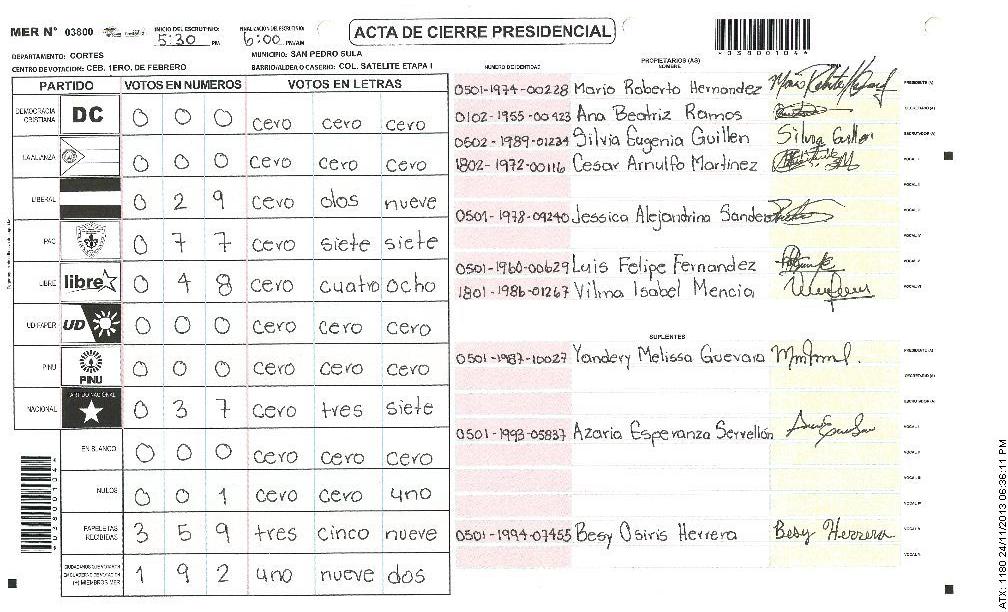 MER N° 03800
INICIO DEL ESCRUTINIO: 5:30 PM
FINALIZACION DEL ESCRUTINIO: 6:00 PM/AM
ACTA DE CIERRE PRESIDENCIAL
*03800104*
DEPARTAMENTO: CORTES
MUNICIPIO: SAN PEDRO SULA
CENTRO DE VOTACION: CEB. 1ERO. DE FEBRERO
BARRIO/ALDEA O CASERIO: COL. SATELITE ETAPA I
PARTIDO VOTOS EN NUMEROS VOTOS EN LETRAS
DEMOCRACIA CRISTIANA DC 0 0 0 cero cero cero
LA ALIANZA 0 0 0 cero cero cero
LIBERAL 0 2 9 cero dos nueve
PAC 0 7 7 cero siete siete
LIBRE libre 0 4 8 cero cuatro ocho
UD FAPER UD 0 0 0 cero cero cero
PINU PINU 0 0 0 cero cero cero
NACIONAL PARTIDO NACIONAL 0 3 7 cero tres siete
EN BLANCO 0 0 0 cero cero cero
NULOS 0 0 1 cero cero uno
PAPELETAS RECIBIDAS 3 5 9 tres cinco nueve
(+) MIEMBROS MER 1 9 2 uno nueve dos
*03800104*
NUMERO DE IDENTIDAD
PROPIETARIOS (AS)
NOMBRE
0501-1974-00228 Mario Roberto Hernandez PRESIDENTE (A)
0102-1955-00423 Ana Beatriz Ramos SECRETARIO (A)
0502-1989-01234 Silvia Eugenia Guillen Silvia Guillen ESCRUTADOR (A)
1802-1972-00116 Cesar Arnulfo Martinez VOCAL I
VOCAL II
0501-1978-09240 Jessica Alejandrina Sandero
VOCAL IV
0501-1960-00629 Luis Felipe Fernandez VOCAL V
1801-1986-01267 Vilma Isabel Mencia VOCAL VI
SUPLENTES
0501-1987-10027 Yandery Melissa Guevara PRESIDENTE (A)
SECRETARIO (A)
ESCRUTADOR (A)
0501-1993-05837 Azaria Esperanza Servellón VOCAL I
0501-1994-07455 Besy Osiris Herrera Besy Herrera
ATX: 1180 24/11/2013 06:36:11 PM